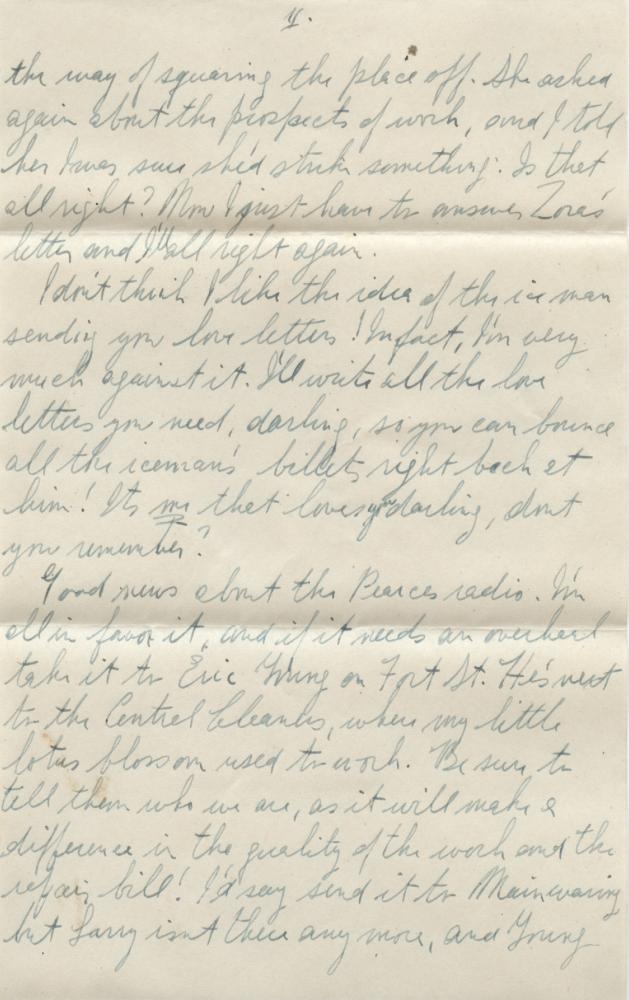 4.
the way of squaring the place off. She asked
again about the prospects of work, and I told
her I was sure she'd strike something. Is that
all right? Now I just have to answer Zora's
letter and I'll all right again.
I don't think I like the idea of the ice man
sending you love letters! In fact, I'm very
much against it. I'll write all the love
letters you need, darling, so you can bounce
all the iceman's billets right back at
him! Its me that loves you darling, don't
you remember?
Good news about the Pearces radio. I'm
all in favor it, and if it needs an overhaul
take it to Eric Young on Fort St. He's next
to the Central Cleaners, where my little
lotus blossom used to work. Be sure to
tell them who we are, as it will make a
difference in the quality of the work and the
repair bill! I'd say send it to Mainwaring
but Larry isn't there any more, and Young